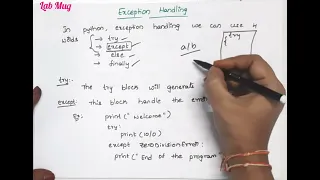 Lab Mug
Exception Handling
In python, exception handling we can use 4
words → try
→ except
→ else
→ finally
a/b
try
{
try:
The try block will generate
except: This block handle the error
Eg: print("Welcome")
try:
print(10/0)
except ZeroDivisionError:
print("End of the program"